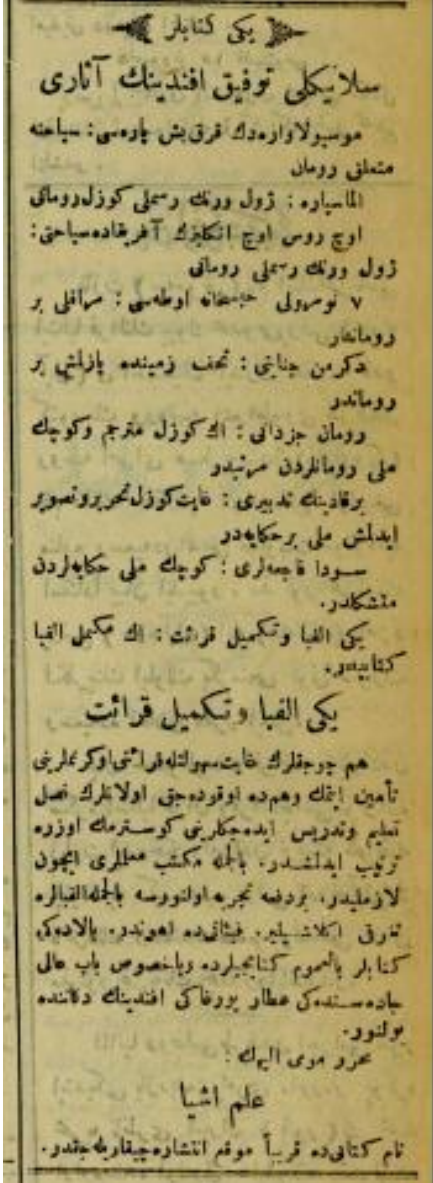 یكی كتابلر
سلانیكلی توفیق افندینك آثاری
موسیولاواره‌دك قرق بش پاره‌سی : سیاحته
متعلق رومان
الماسپاره : ژول ورنك رسملی كوزل رومانی
اوچ روس اوچ انكلیزك آفریقاده سیاحتی :
ژول ورنك رسملی رومانی
٧ نومرولی جمعخانه اوطه‌سی : مراقلی بر
روماندر
دكرمن جنایتی : تحف زمینده یازلمش بر
روماندر
رومان جزدانی : اك كوزل مترجم وكوچك
ملی رومانلردن مرتبدر
برقادینك تدبیری : غایت كوزل تحریر و تصویر
ایدلمش ملی برحكایه‌در
سودا فاجعه‌لری : كوچك ملی حكایه‌لردن
متشكلدر.
یكی الفبا وتكمیل قرائت : اك مكمل الفبا
كتابیدر.
یكی الفبا وتكمیل قرائت
هم چوجقلرك غایت سهولتله قرائتی اوكرنملرینی
تأمین ایتمك وهم‌ده اوقوده‌جق اولانلرك نصل
تعلیم وتدریس ایده‌جكلرینی كوسترمك اوزره
ترتیب ایدلمشدر. بالجمله مكتب معلملری ایچون
لازملیدر. بردفعه تجربه اولنورسه بالجمله الفبالره
تفوقی اكلاشیلیر. فیئاتی‌ده اهوندر. بالاده‌كی
كتابلر بالعموم كتابجیلرده وباخصوص باب عالی
جاده‌سنده‌كی عطار یورغاكی افندینك دكاننده
بولنور.
محرر مومی الیهك :
علم اشیا
نام كتابی‌ده قریباً موقع انتشاره چیقاریله‌جقدر.